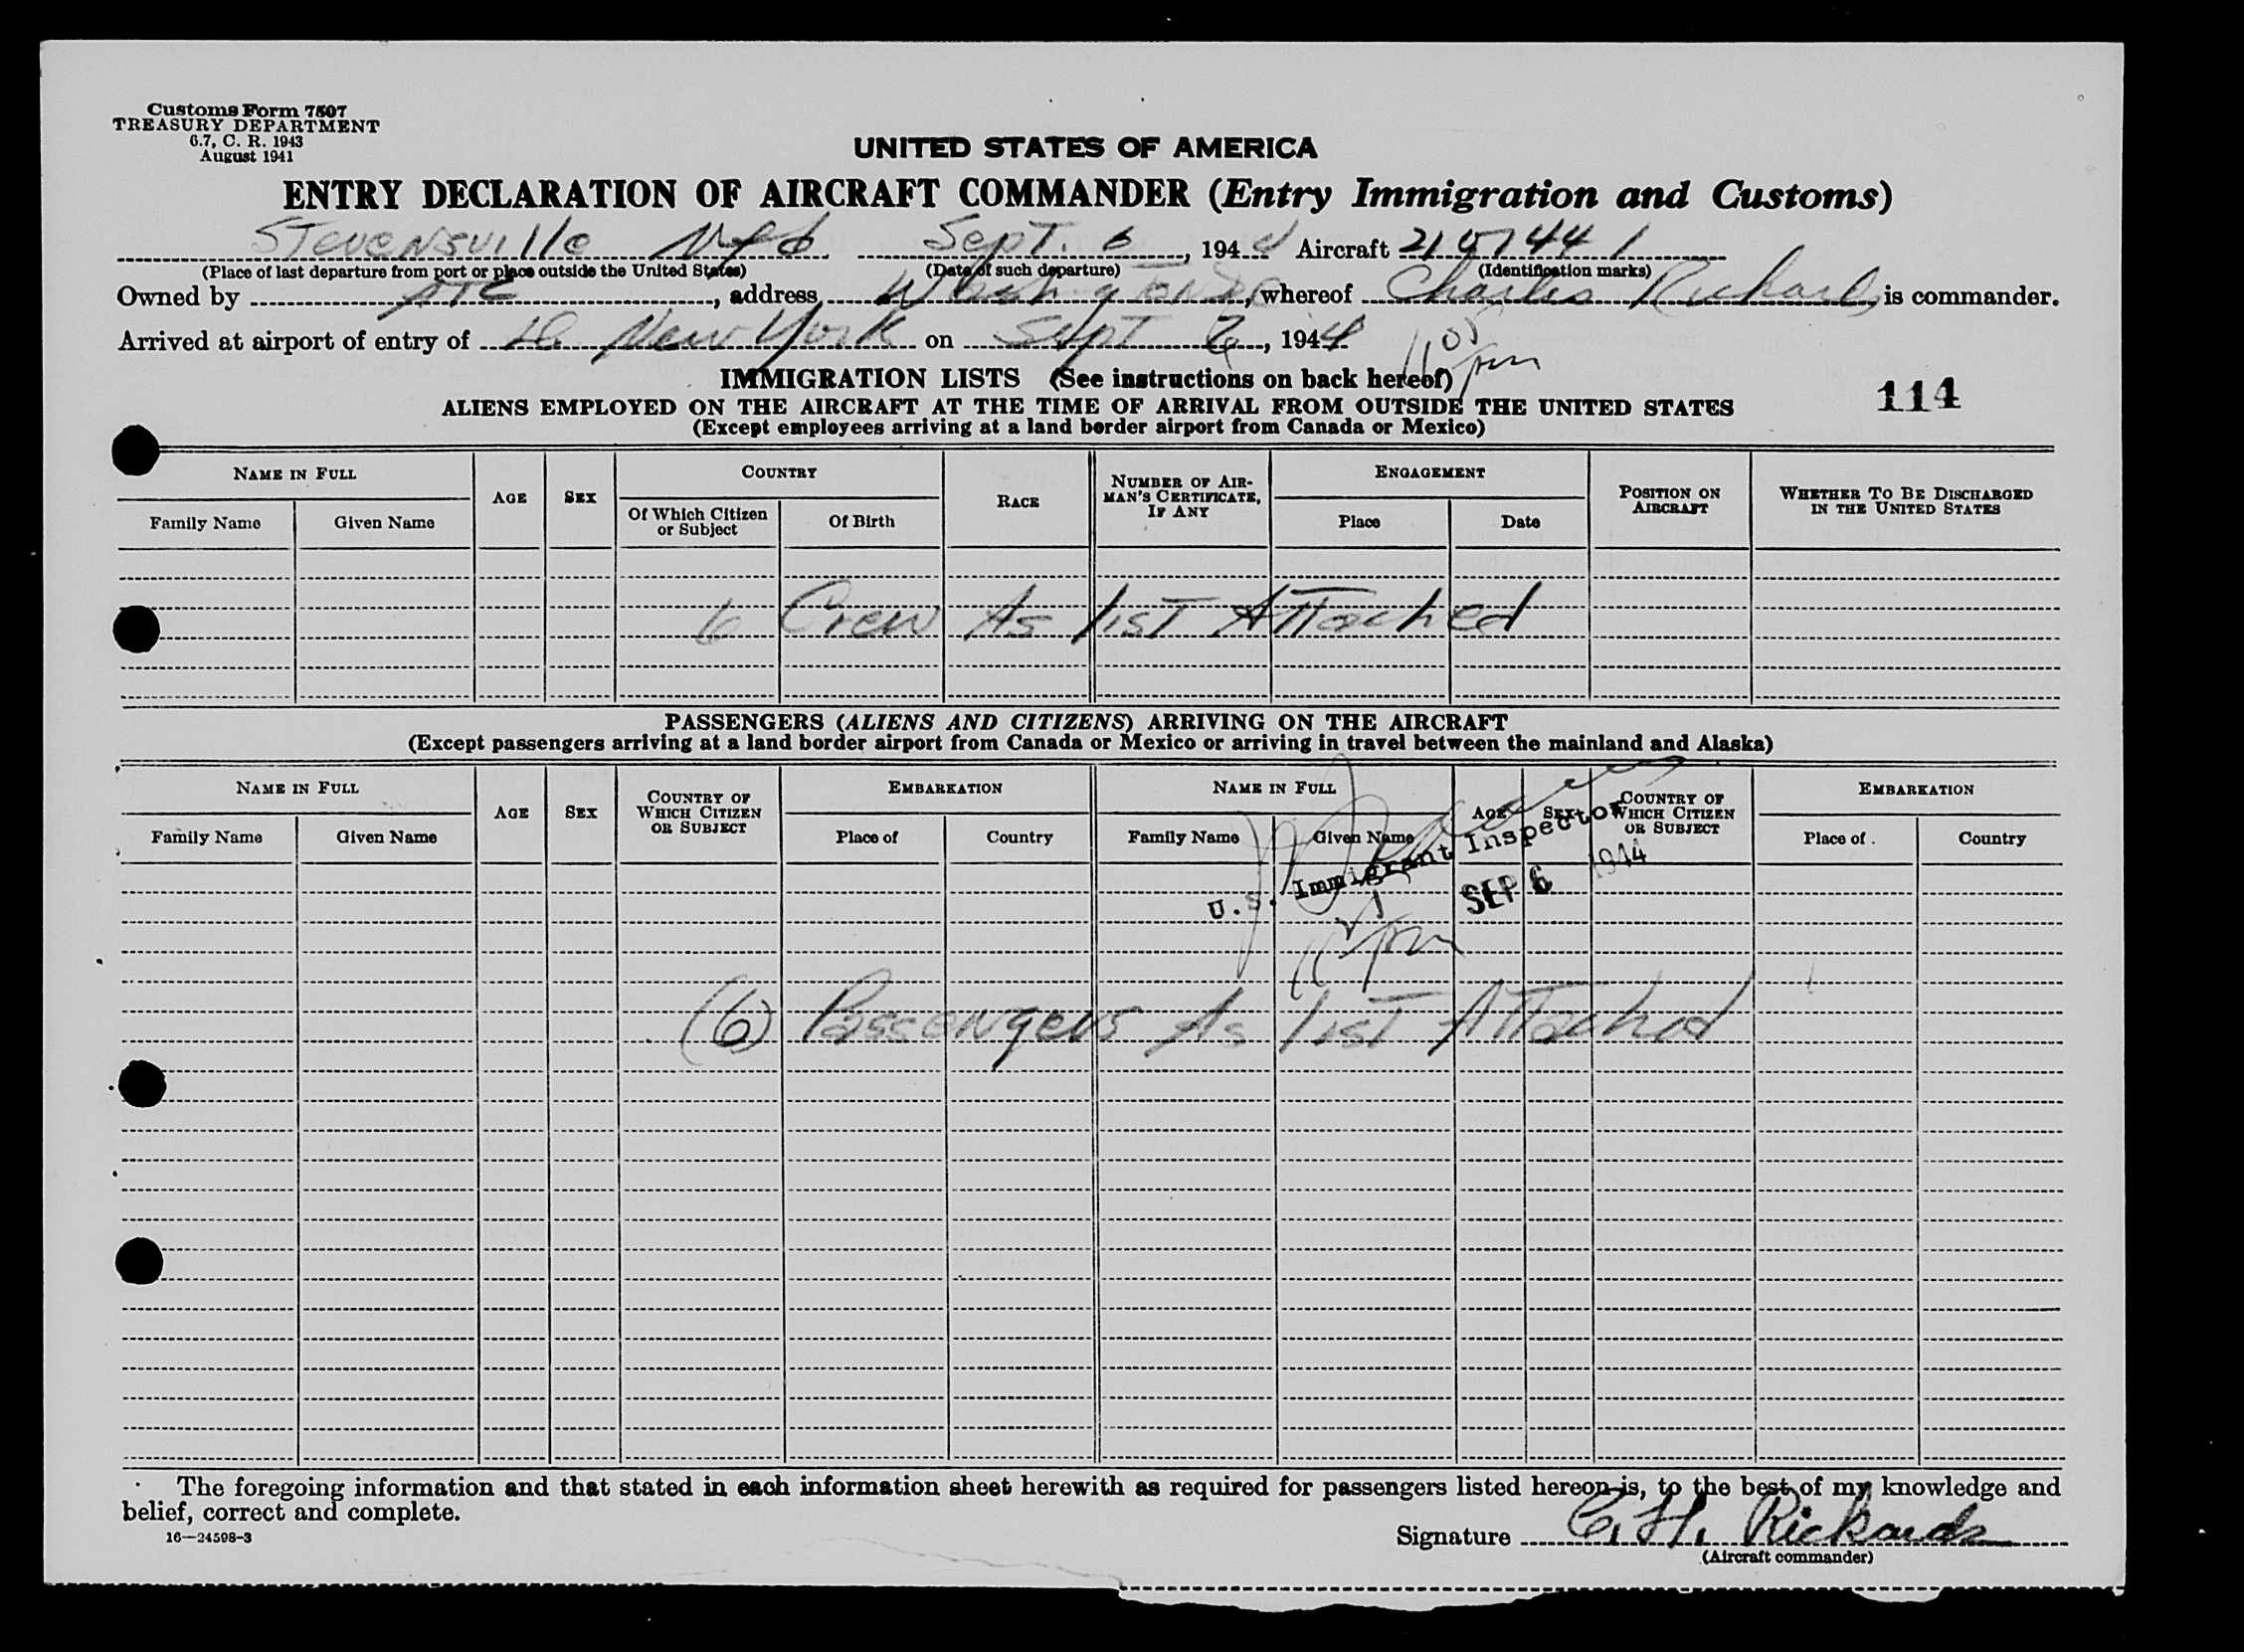 Customs Form 7507
TREASURY DEPARTMENT
6.7, C. R. 1943
August 1941
UNITED STATES OF AMERICA
ENTRY DECLARATION OF AIRCRAFT COMMANDER (Entry Immigration and Customs)
Stevensville Nfd Sept. 6, 1944 Aircraft
(Place of last departure from port or place outside the United States) (Date of such departure) (Identification marks)
Owned by ATC, address Washington DC, whereof Charles Rickards, is commander.
Arrived at airport of entry of New York on Sept 6, 1944
1105 pm
IMMIGRATION LISTS (See instructions on back hereof)
114
ALIENS EMPLOYED ON THE AIRCRAFT AT THE TIME OF ARRIVAL FROM OUTSIDE THE UNITED STATES
(Except employees arriving at a land border airport from Canada or Mexico)
NAME IN FULL AGE SEX COUNTRY RACE NUMBER OF AIRMAN'S CERTIFICATE, IF ANY ENGAGEMENT POSITION ON AIRCRAFT WHETHER TO BE DISCHARGED IN THE UNITED STATES
Family Name Given Name Of Which Citizen or Subject Of Birth Place Date
6 Crew As list Attached
PASSENGERS (ALIENS AND CITIZENS) ARRIVING ON THE AIRCRAFT
(Except passengers arriving at a land border airport from Canada or Mexico or arriving in travel between the mainland and Alaska)
NAME IN FULL AGE SEX COUNTRY OF WHICH CITIZEN OR SUBJECT EMBARKATION NAME IN FULL AGE SEX COUNTRY OF WHICH CITIZEN OR SUBJECT EMBARKATION
Family Name Given Name Place of Country Family Name Given Name Place of Country
U.S. Immigrant Inspector
SEP 6 1944
11 pm
(6) Passengers As list Attached
The foregoing information and that stated in each information sheet herewith as required for passengers listed hereon is, to the best of my knowledge and
belief, correct and complete.
16—24598-3
Signature C. H. Rickards
(Aircraft commander)